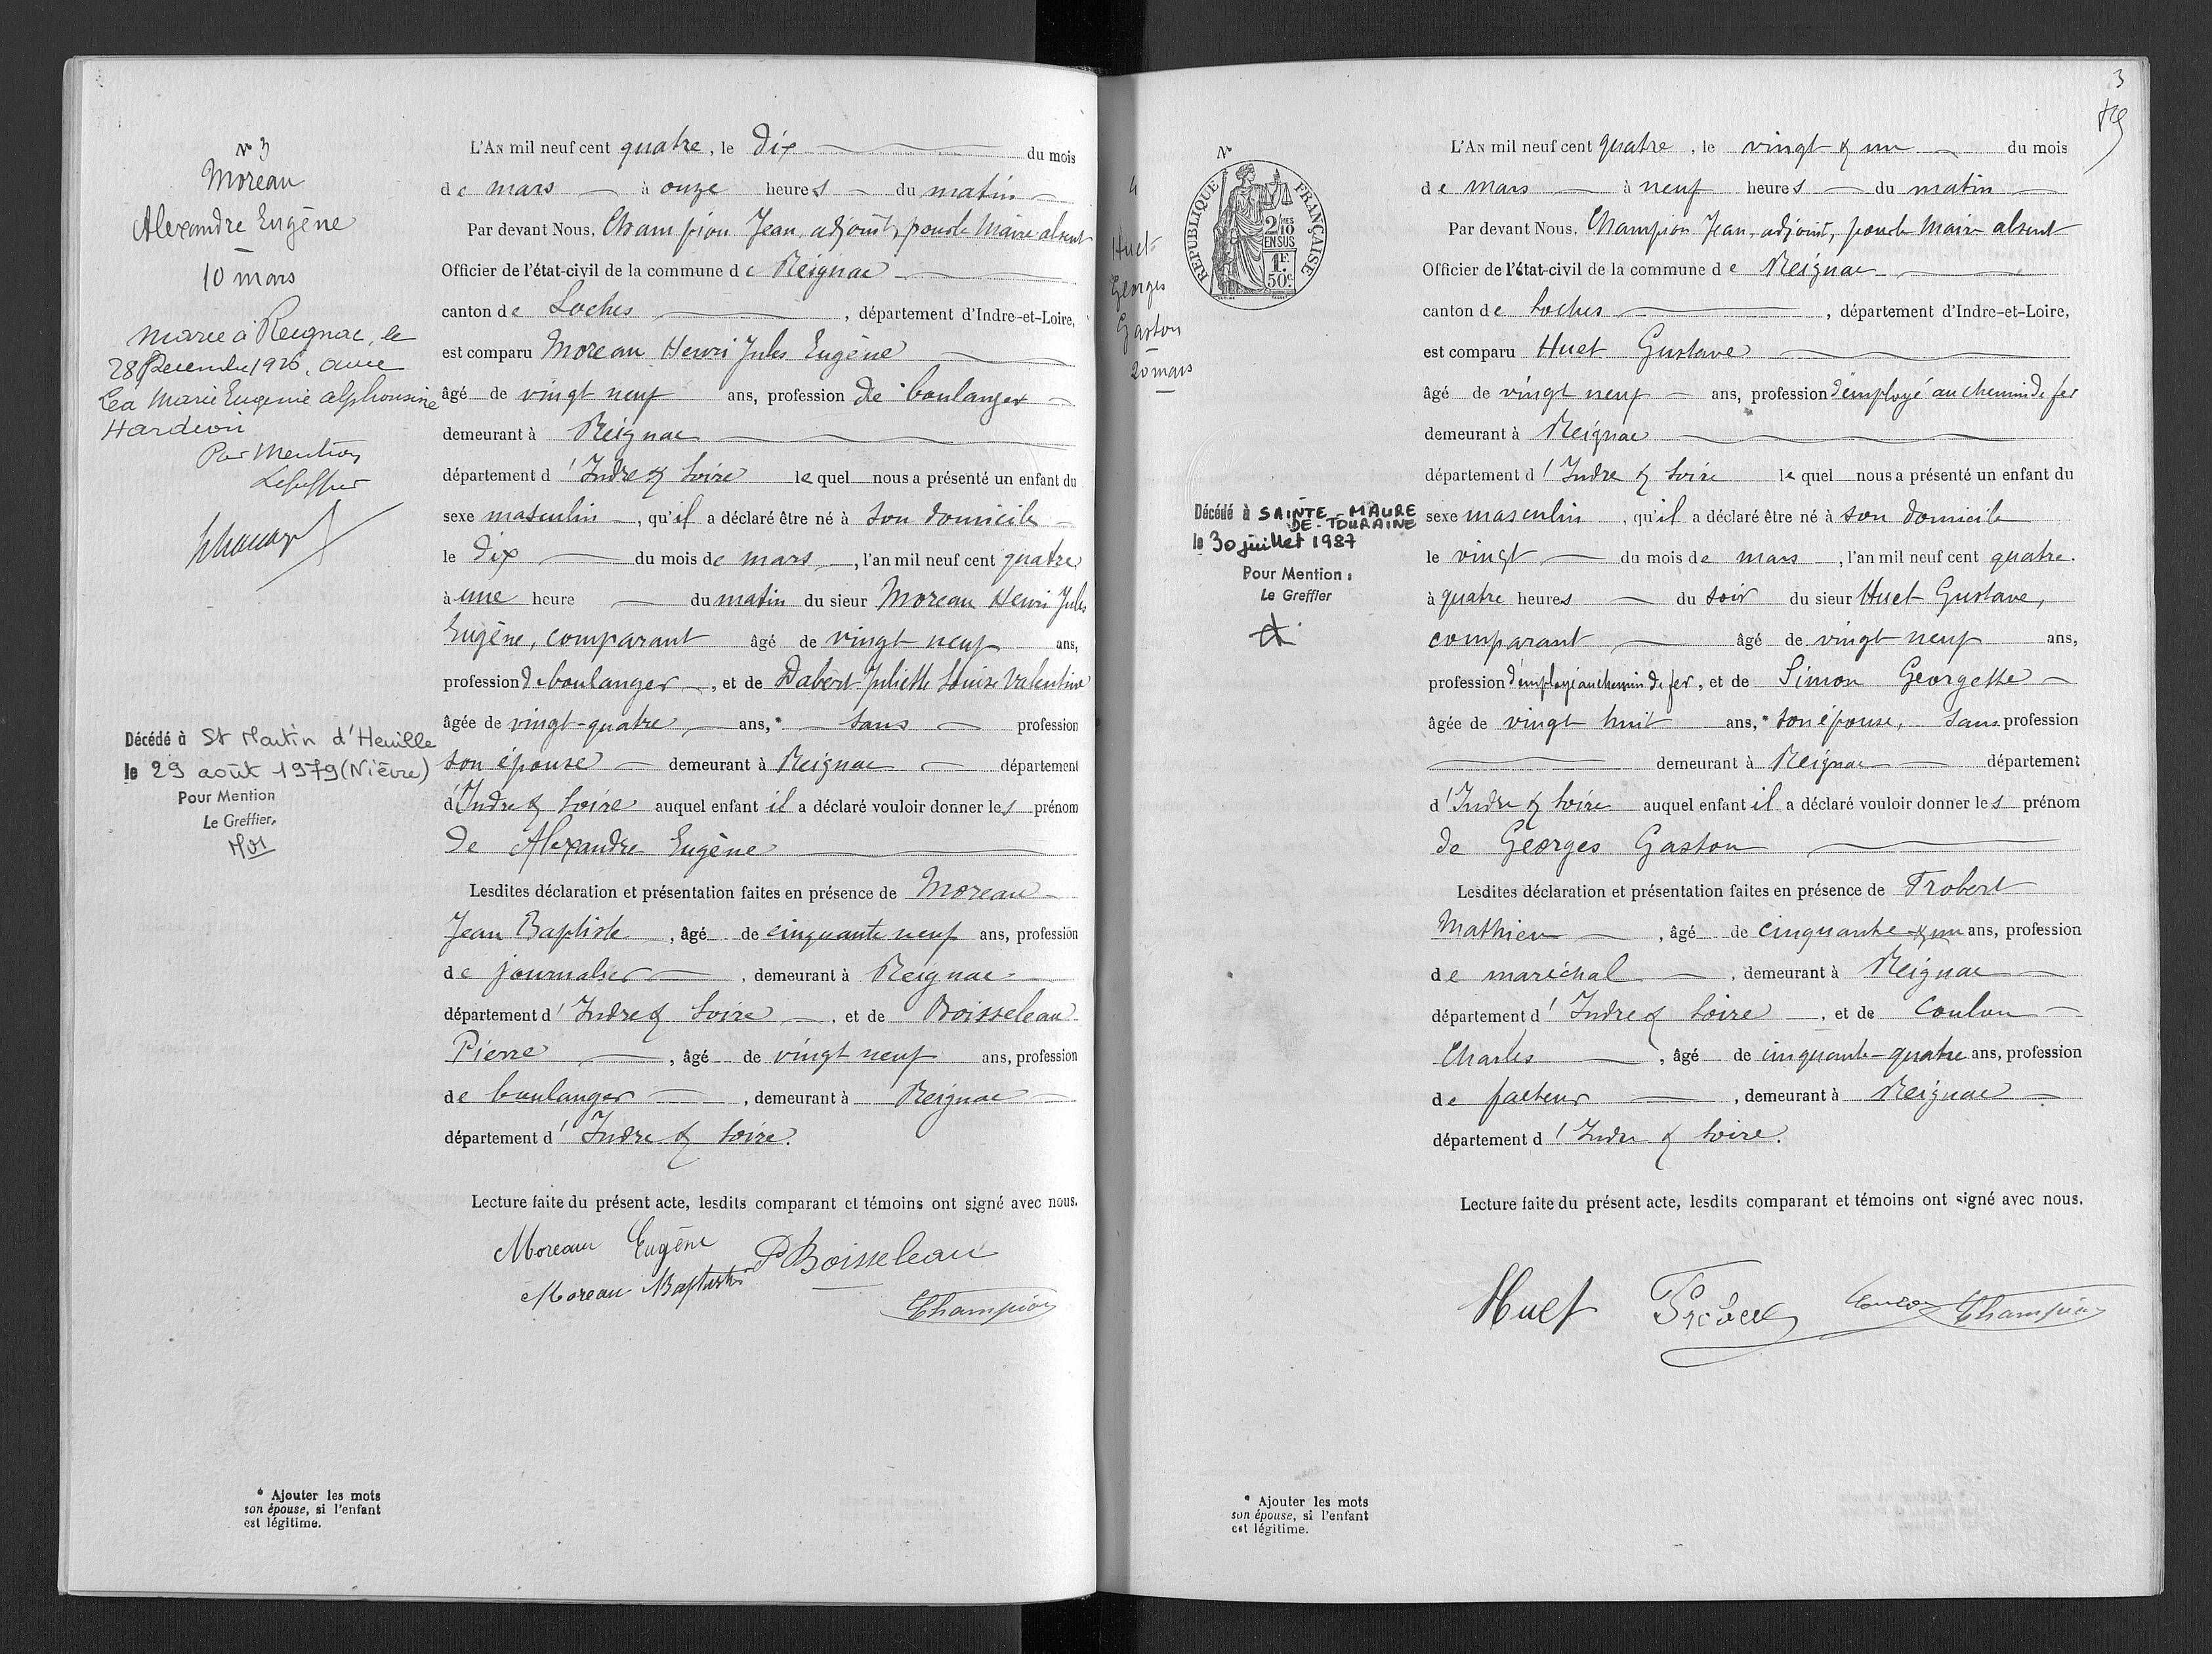 N° 3
Moreau
Alexandre Eugène
10 mars
marié à Reignac, le
28 Décembre 1926, avec
Léa Marie Eugénie alphonsine
Hardion
Par Mention
Décédé à St Martin d'Heuille
le 29 août 1979 (Nièvre)
Pour Mention
Le Greffier,
* Ajouter les mots
son épouse, si l'enfant
est légitime.
L'AN mil neuf cent quatre, le dix du mois
de mars à onze heures du matin
Par devant Nous, Champion Jean, adjoint, pour le Maire absent
Officier de l'état-civil de la commune de Reignac
canton de Loches, département d'Indre-et-Loire,
est comparu Moreau Henri Jules Eugène
âgé de vingt neuf ans, profession de boulanger
demeurant à Reignac
département d'Indre & Loire lequel nous a présenté un enfant du
sexe masculin, qu'il a déclaré être né à son domicile
le dix du mois de mars, l'an mil neuf cent quatre
à une heure du matin du sieur Moreau Henri Jules
Eugène, comparant âgé de vingt neuf ans,
profession de boulanger, et de Dabert Juliette Louise Valentine
âgée de vingt-quatre ans,* sans profession
son épouse demeurant à Reignac département
d'Indre & Loire auquel enfant il a déclaré vouloir donner les prénom
de Alexandre Eugène
Lesdites déclaration et présentation faites en présence de Moreau
Jean Baptiste, âgé de cinquante neuf ans, profession
de journalier, demeurant à Reignac
département d'Indre & Loire, et de Boisseleau
Pierre, âgé de vingt neuf ans, profession
de boulanger, demeurant à Reignac
département d'Indre & Loire.
Lecture faite du présent acte, lesdits comparant et témoins ont signé avec nous.
Moreau Eugène P Boisseleau
Moreau Baptiste
Champion
3
N°
4
RÉPUBLIQUE FRANÇAISE
2/10 EN SUS
1F 50c
Huet
Georges
Gaston
20 mars
Décédé à SAINTE-MAURE
DE-TOURAINE
le 30 juillet 1987
Pour Mention :
Le Greffier
* Ajouter les mots
son épouse, si l'enfant
est légitime.
L'AN mil neuf cent quatre, le vingt & un du mois
de mars à neuf heures du matin
Par devant Nous, Champion Jean, adjoint, pour le Maire absent
Officier de l'état-civil de la commune de Reignac
canton de Loches, département d'Indre-et-Loire,
est comparu Huet Gustave
âgé de vingt neuf ans, profession d'employé au chemin de fer
demeurant à Reignac
département d'Indre & Loire lequel nous a présenté un enfant du
sexe masculin, qu'il a déclaré être né à son domicile
le vingt du mois de mars, l'an mil neuf cent quatre.
à quatre heures du soir du sieur Huet Gustave,
comparant âgé de vingt neuf ans,
profession d'employé au chemin de fer, et de Simon Georgette
âgée de vingt huit ans,* son épouse, sans profession
demeurant à Reignac département
d'Indre & Loire auquel enfant il a déclaré vouloir donner les prénom
de Georges Gaston
Lesdites déclaration et présentation faites en présence de Frobert
Mathieu, âgé de cinquante & un ans, profession
de maréchal, demeurant à Reignac
département d'Indre & Loire, et de Coulon
Charles, âgé de cinquante-quatre ans, profession
de facteur, demeurant à Reignac
département d'Indre & Loire.
Lecture faite du présent acte, lesdits comparant et témoins ont signé avec nous.
Huet Frobert Coulon Champion